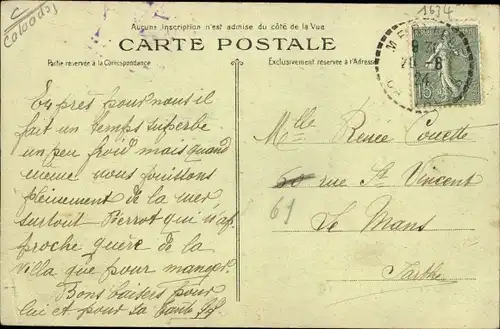 Calvados
1634
Aucune Inscription n'est admise du côté de la Vue
CARTE POSTALE
Partie réservée à la Correspondance
Exclusivement réservée à l'Adresse
Exprès pour nous il
fait un temps superbe
un peu froid mais quand
meme nous jouissons
pleinement de la mer
surtout Pierrot qui n'ap
proche guère de la
villa que pour manger.
Bons baisers pour
lui et pour sa tante
Mlle Renée Couette
60 rue St Vincent
61
Le Mans
Sarthe
15